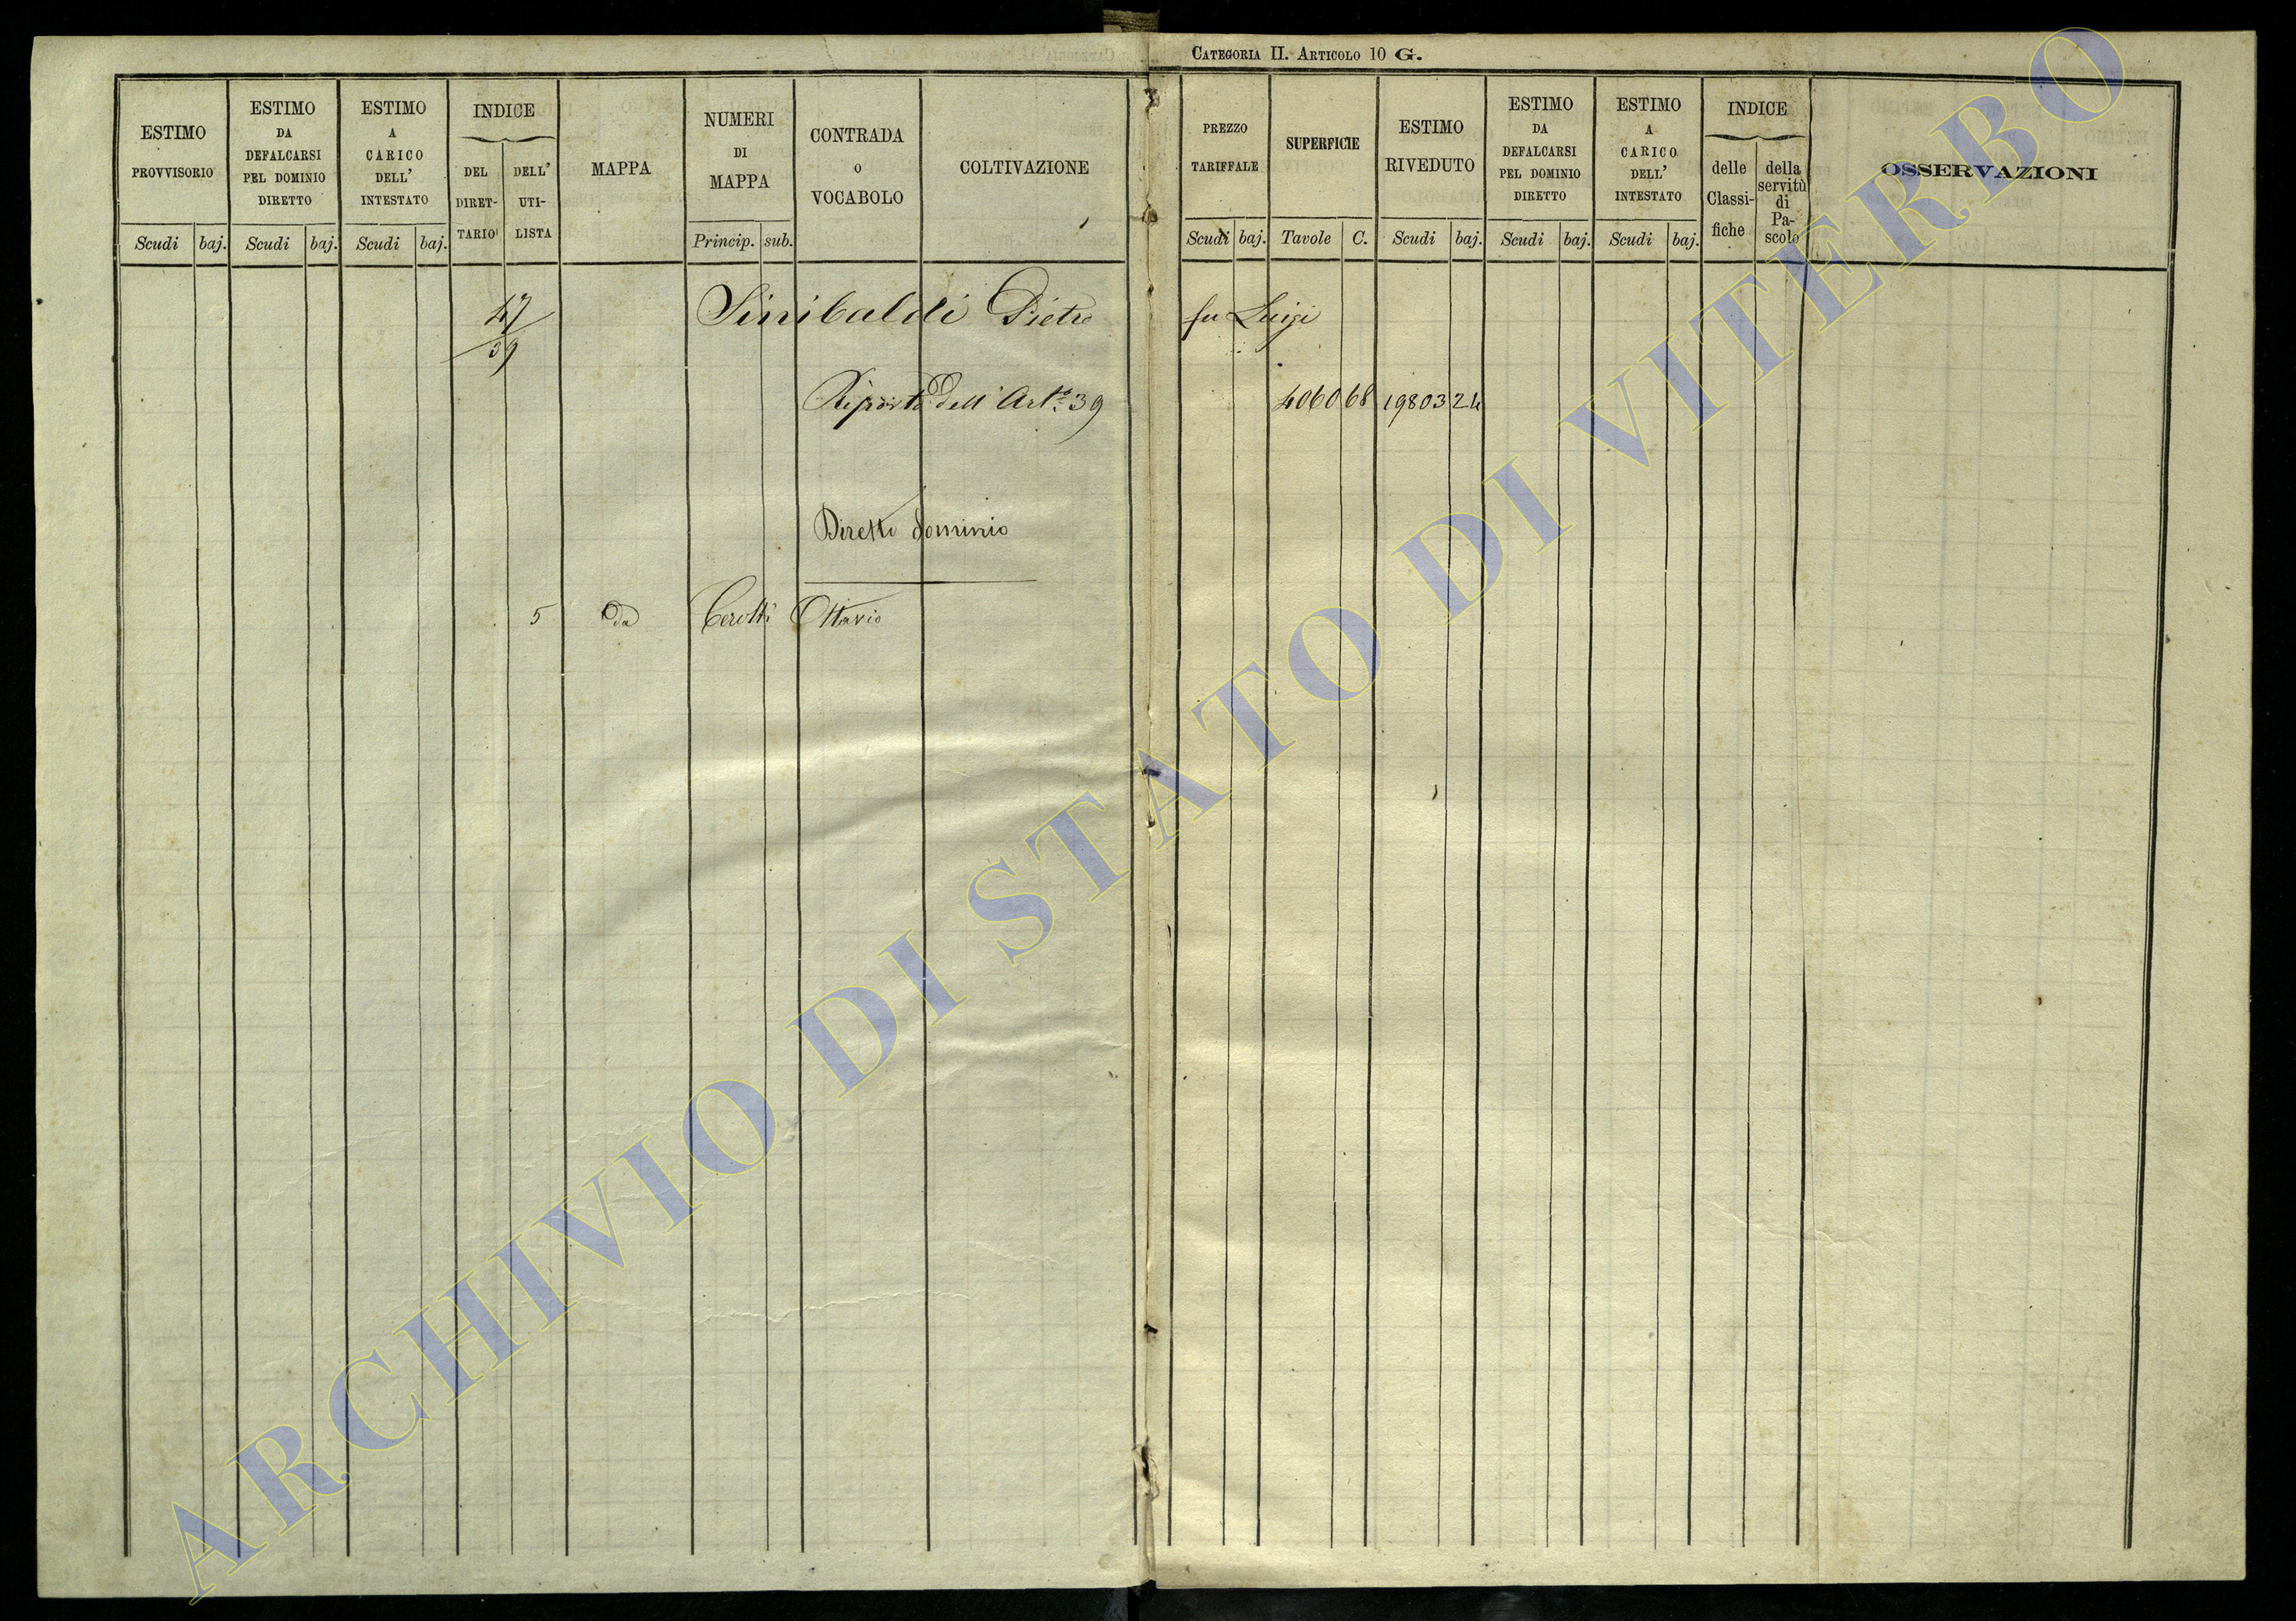 CATEGORIA II. ARTICOLO 10 G.
ESTIMO PROVVISORIO
ESTIMO DA DEFALCARSI PEL DOMINIO DIRETTO
ESTIMO A CARICO DELL' INTESTATO
INDICE
DEL DIRET- TARIO
DELL' UTI- LISTA
MAPPA
NUMERI DI MAPPA
CONTRADA O VOCABOLO
COLTIVAZIONE
PREZZO TARIFFALE
SUPERFICIE
ESTIMO RIVEDUTO
ESTIMO DA DEFALCARSI PEL DOMINIO DIRETTO
ESTIMO A CARICO DELL' INTESTATO
INDICE
delle Classi- fiche
della servitù di Pa- scolo
OSSERVAZIONI
Scudi baj. Scudi baj. Scudi baj. Princip. sub. Scudi baj. Tavole C. Scudi baj. Scudi baj. Scudi baj.
47 Sinibaldi Pietro fu Luigi
39
Riporto dell' Art.º 39 4060 68 19803 24
Diretti dominio
5 da Cerotti Ottavio
ARCHIVIO DI STATO DI VITERBO